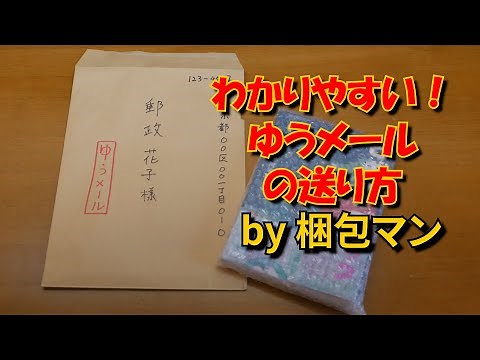 わかりやすい!
ゆうメール
の送り方
by 梱包マン
123-4567
京都〇〇区〇〇一丁目〇-〇
郵政 花子様
ゆうメール